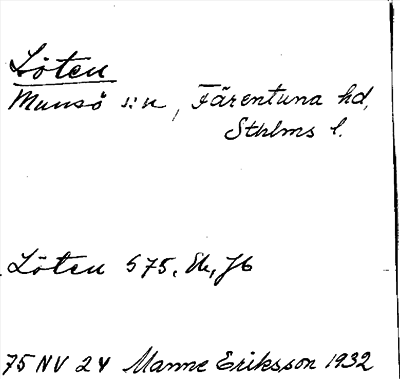 Löten
Munsö s:n, Färentuna hd,
Sthlms l.
Löten 575, Ek, Jb
75 NV 24 Manne Eriksson 1932